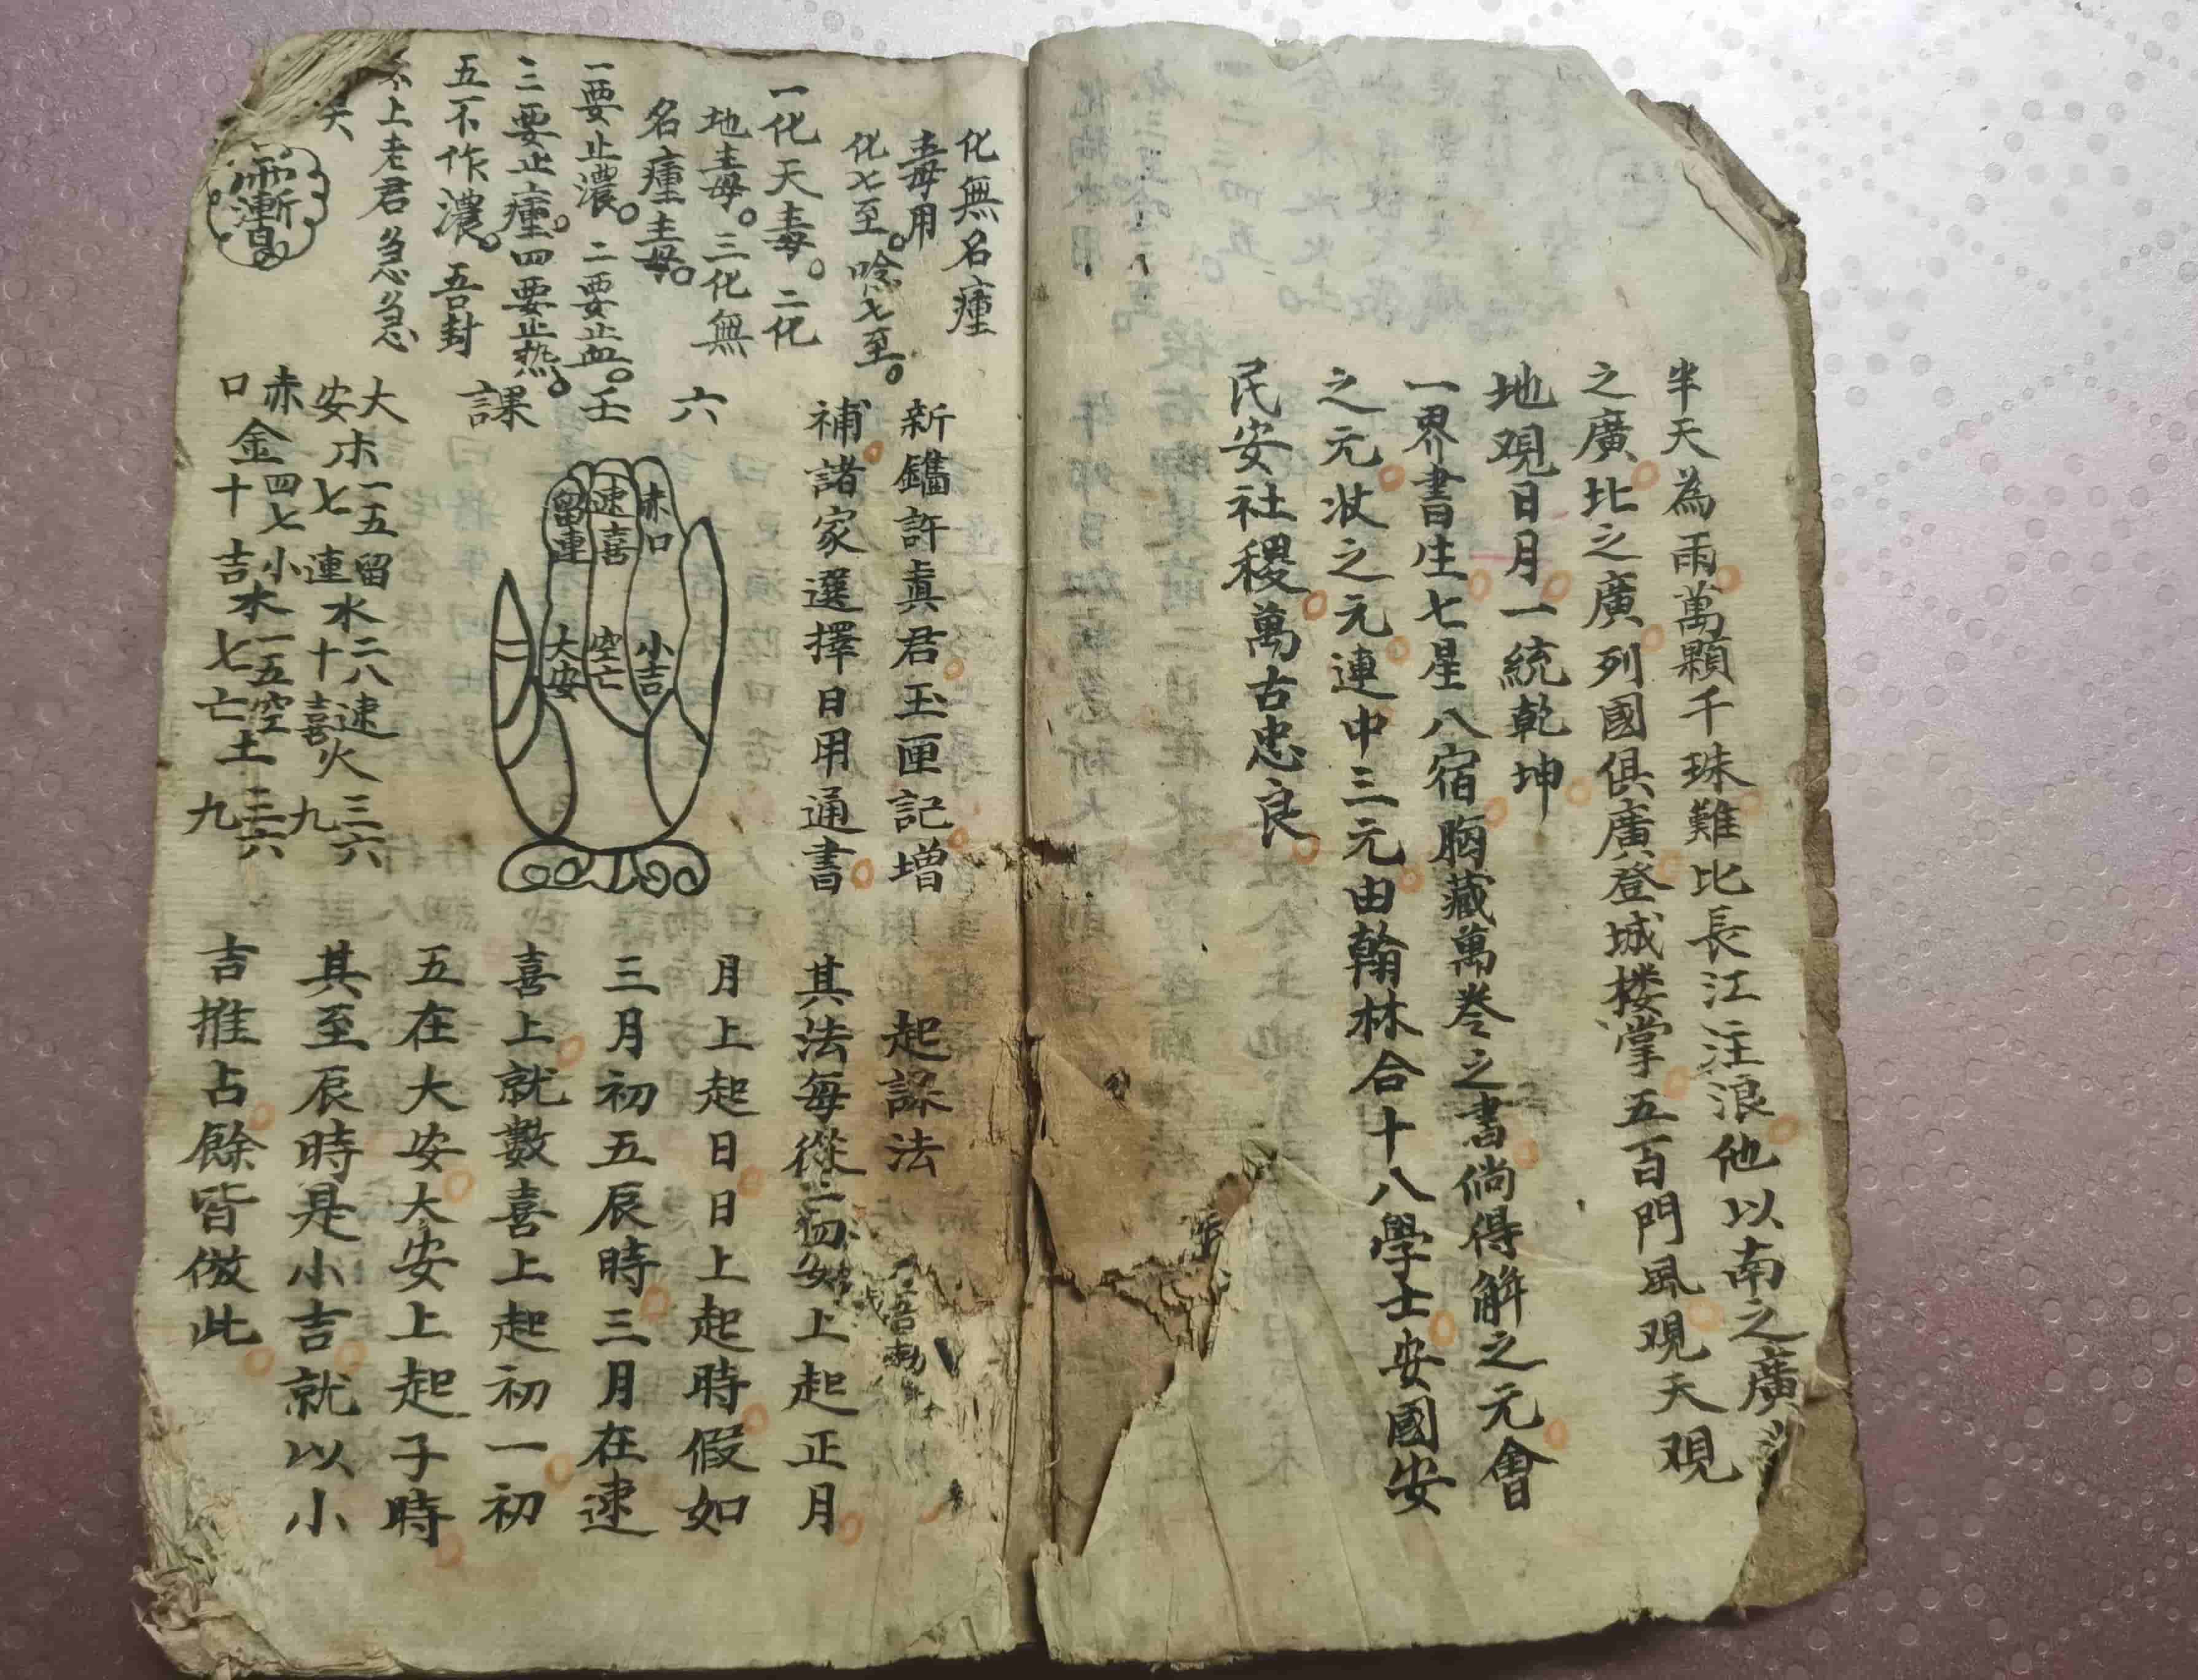 半天為雨萬顆千珠難比長江注浪他以南之廣
之廣北之廣列國俱廣登城楼掌五百門風观天观
地观日月一統乾坤
一界書生七星八宿胸藏萬卷之書倘得解之元會
之元狀之元連中三元由翰林合十八學士安國安
民安社稷萬古忠良
化無名瘇
毒用
化七至唸七至
一化天毒二化
地毒三化無
名瘇毒
一要止濃二要止血
三要止瘇四要止热
五不作濃吾封
太上老君急急
新鐫許真君玉匣記增
補諸家選擇日用通書
六壬課
赤口
速喜
留連
小吉
空亡
大安
大安木一五七
留連水二八十
速喜火三六九
赤口金四七十
小吉木一五七
空亡土三六九
起課法
其法每從上起正月
月上起日日上起時假如
三月初五辰時三月在速
喜上就數喜上起初一初
五在大安大安上起子時
其至辰時是小吉就以小
吉推占餘皆倣此